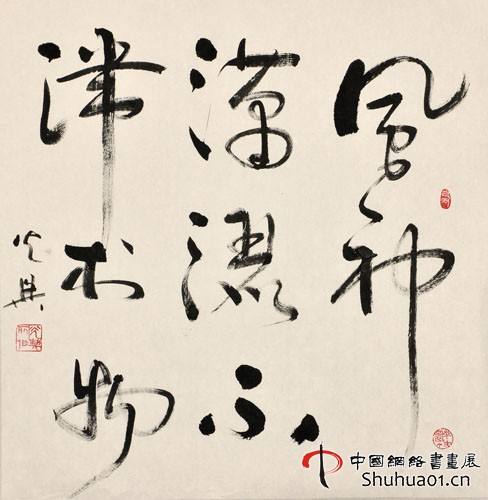 風神
瀟灑不
滯於物
中國網絡書畫展
Shuhua01.cn